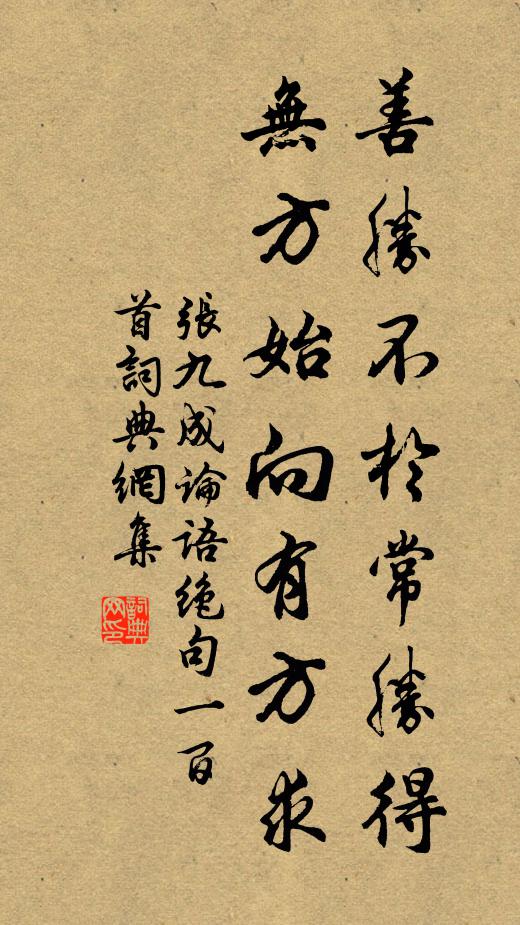 善勝不於常勝得
無方始向有方求
張九成論語絶句一百
首詞典網集
詞典网印